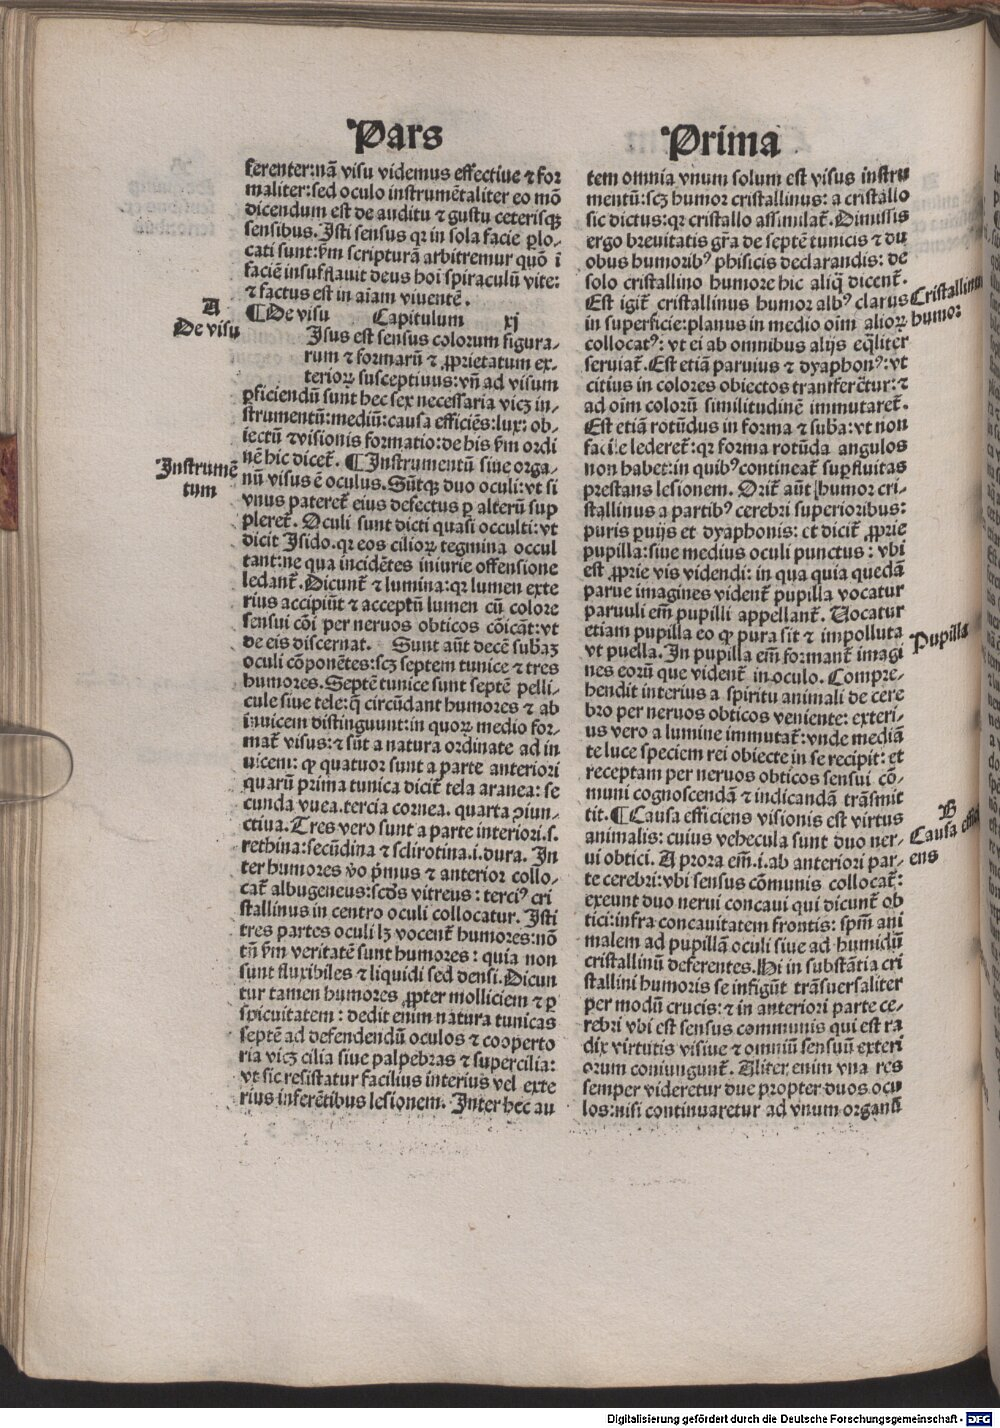 Pars
Prima
ferenter:nã visu videmus effectiue ⁊ for
maliter:sed oculo instrumẽtaliter eo mõ
dicendum est de auditu ⁊ gustu ceterisqꝫ
sensibus. Isti sensus qr in sola facie ꝓlo-
cati sunt:ẜm scripturã arbitremur quõ ĩ
faciẽ insufflauit deus hoĩ spiraculũ vite:
⁊ factus est in aĩam viuentẽ.
A
De visu
¶ De visu Capitulum xj
Isus est sensus colorum figura-
rum ⁊ formarũ ⁊ ꝓprietatum ex-
terioꝝ susceptiuus:vñ ad visum
ꝑficiendũ sunt hec sex necessaria vicꝫ in-
strumentũ:mediũ:causa efficiẽs:lux: ob-
iectũ ⁊visionis formatio:de his ẜm ordi
nẽ hic dicet᷑. ¶ Instrumentũ siue orga-
Instrumẽ
tum
nũ visus ẽ oculus. Sũtqꝫ duo oculi:vt si
vnus pateret᷑ eius defectus ꝑ alterũ sup
pleret᷑. Oculi sunt dicti quasi occulti: vt
dicit Isido. qr eos cilioꝝ tegmina occul
tant:ne qua incidẽtes iniurie offensione
ledant᷑. Dicunt᷑ ⁊ lumina:qr lumen exte
rius accipiũt ⁊ acceptũ lumen cũ colore
sensui cõi per neruos obticos cõicãt:vt
de eis discernat. Sunt aũt decẽ subaꝫ
oculi cõponẽtes:scꝫ septem tunice ⁊ tres
humores. Septẽ tunice sunt septẽ pelli-
cule siue tele:q̃ circũdant humores ⁊ ab
inuicem distinguunt:in quoꝝ medio for-
mat᷑ visus:⁊ sũt a natura ordinate ad in
uicem: ꝙ quatuor sunt a parte anteriori
quarũ prima tunica dicit᷑ tela aranea: se
cunda vuea. tercia cornea. quarta ꝯiun-
ctiua. Tres vero sunt a parte interiori.s.
rethina:secũdina ⁊ sclirotina.i.dura. In
ter humores ṽo p̃mus ⁊ anterior collo-
cat᷑ albugeneus:scḋs vitreus: terciꝰ cri
stallinus in centro oculi collocatur. Isti
tres partes oculi lꝫ vocent᷑ humores:nõ
tñ ẜm veritatẽ sunt humores: quia non
sunt fluxibiles ⁊ liquidi sed densi. Dicun
tur tamen humores ꝓpter molliciem ⁊ ꝑ
spicuitatem: dedit enim natura tunicas
septẽ ad defendendũ oculos ⁊ cooperto
ria vicꝫ cilia siue palpebras ⁊ supercilia:
vt sic resistatur facilius interius vel exte
rius inferẽtibus lesionem. Inter hec au
tem omnia vnum solum est visus instru
mentũ:scꝫ humor cristallinus: a cristallo
sic dictus: qr cristallo assimilat᷑. Dimissis
ergo breuitatis gr̃a de septẽ tunicis ⁊ du
obus humoribꝰ phisicis declarandis: de
solo cristallino humore hic aliq̃ dicent᷑.
Est igit᷑ cristallinus humor albꝰ clarus
Cristallinus
humor
in superficie:planus in medio oĩm alioꝝ
collocatꝰ: vt ei ab omnibus alijs eq̃liter
seruiat᷑. Est etiã paruius ⁊ dyaphonꝰ:vt
citius in colores obiectos transferẽtur:⁊
ad oĩm colorũ similitudinẽ immutaret᷑.
Est etiã rotũdus in forma ⁊ suba:vt non
facile lederet᷑:qr forma rotũda angulos
non habet:in quibꝰ contineat᷑ suꝑfluitas
prestans lesionem. Orit᷑ aũt humor cri-
stallinus a partibꝰ cerebri superioribus:
puris puijs et dyaphonis: et dicit᷑ ꝓprie
pupilla: siue medius oculi punctus: vbi
est ꝓprie vis videndi: in qua quia quedã
parue imagines vident᷑ pupilla vocatur
paruuli em̃ pupilli appellant᷑. Uocatur
etiam pupilla eo ꝙ pura sit ⁊ impolluta
Pupilla
vt puella. In pupilla em̃ formant᷑ imagi
nes eorũ que vident᷑ in oculo. Compre-
hendit interius a spiritu animali de cere
bro per neruos obticos veniente: exteri-
us vero a lumine immutat᷑: vnde mediã
te luce speciem rei obiecte in se recipit: et
receptam per neruos obticos sensui cõ-
muni cognoscendã ⁊ indicandã trãsmit
tit. ¶ Causa efficiens visionis est virtus
B
Causa effici
ens
animalis: cuius vehecula sunt duo ner-
ui obtici. A prora em̃.i.ab anteriori par-
te cerebri:vbi sensus cõmunis collocat᷑:
exeunt duo nerui concaui qui dicunt᷑ ob
tici:infra concauitatem frontis: spm̃ ani
malem ad pupillã oculi siue ad humidũ
cristallinũ deferentes. Hi in substãtia cri
stallini humoris se infigũt trãsuersaliter
per modũ crucis:⁊ in anteriori parte ce-
rebri vbi est sensus communis qui est ra
dix virtutis visiue ⁊ omniũ sensuũ exteri
orum coniungunt᷑. Aliter enim vna res
semper videretur due propter duos ocu
los:nisi continuaretur ad vnum organũ
Digitalisierung gefördert durch die Deutsche Forschungsgemeinschaft - DFG